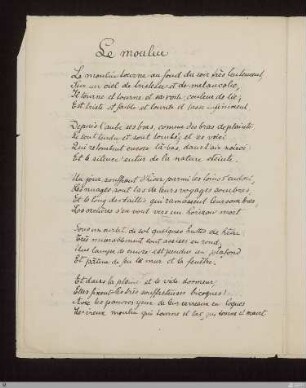 Le moulin
Le moulin tourne au fond du soir, très lentement,
Sur un ciel de tristesse et de mélancolie,
Il tourne et tourne, et sa voile, couleur de lie,
Est triste et faible et lourde et lasse, infiniment.
Depuis l'aube, ses bras, comme des bras de plainte,
Se sont tendus et sont tombés; et les voici
Qui retombent encor, là-bas, dans l'air noirci
Et le silence entier de la nature éteinte.
Un jour souffrant d'hiver parmi les loins s'endort,
Les nuages sont las de leurs voyages sombres,
Et le long des taillis qui ramassent leurs ombres
Les ornières s'en vont vers un horizon mort.
Sous un ourlet de sol, quelques huttes de hêtre
Très misérablement sont assises en rond;
Une lampe de cuivre est pendue au plafond
Et patine de feu le mur et la fenêtre.
Et dans la plaine et le vide dormeur,
Elles fixent les très souffreteuses bicoques!
Avec les pauvres yeux de leurs carreaux en loques
Le vieux moulin qui tourne et las, qui tourne et meurt